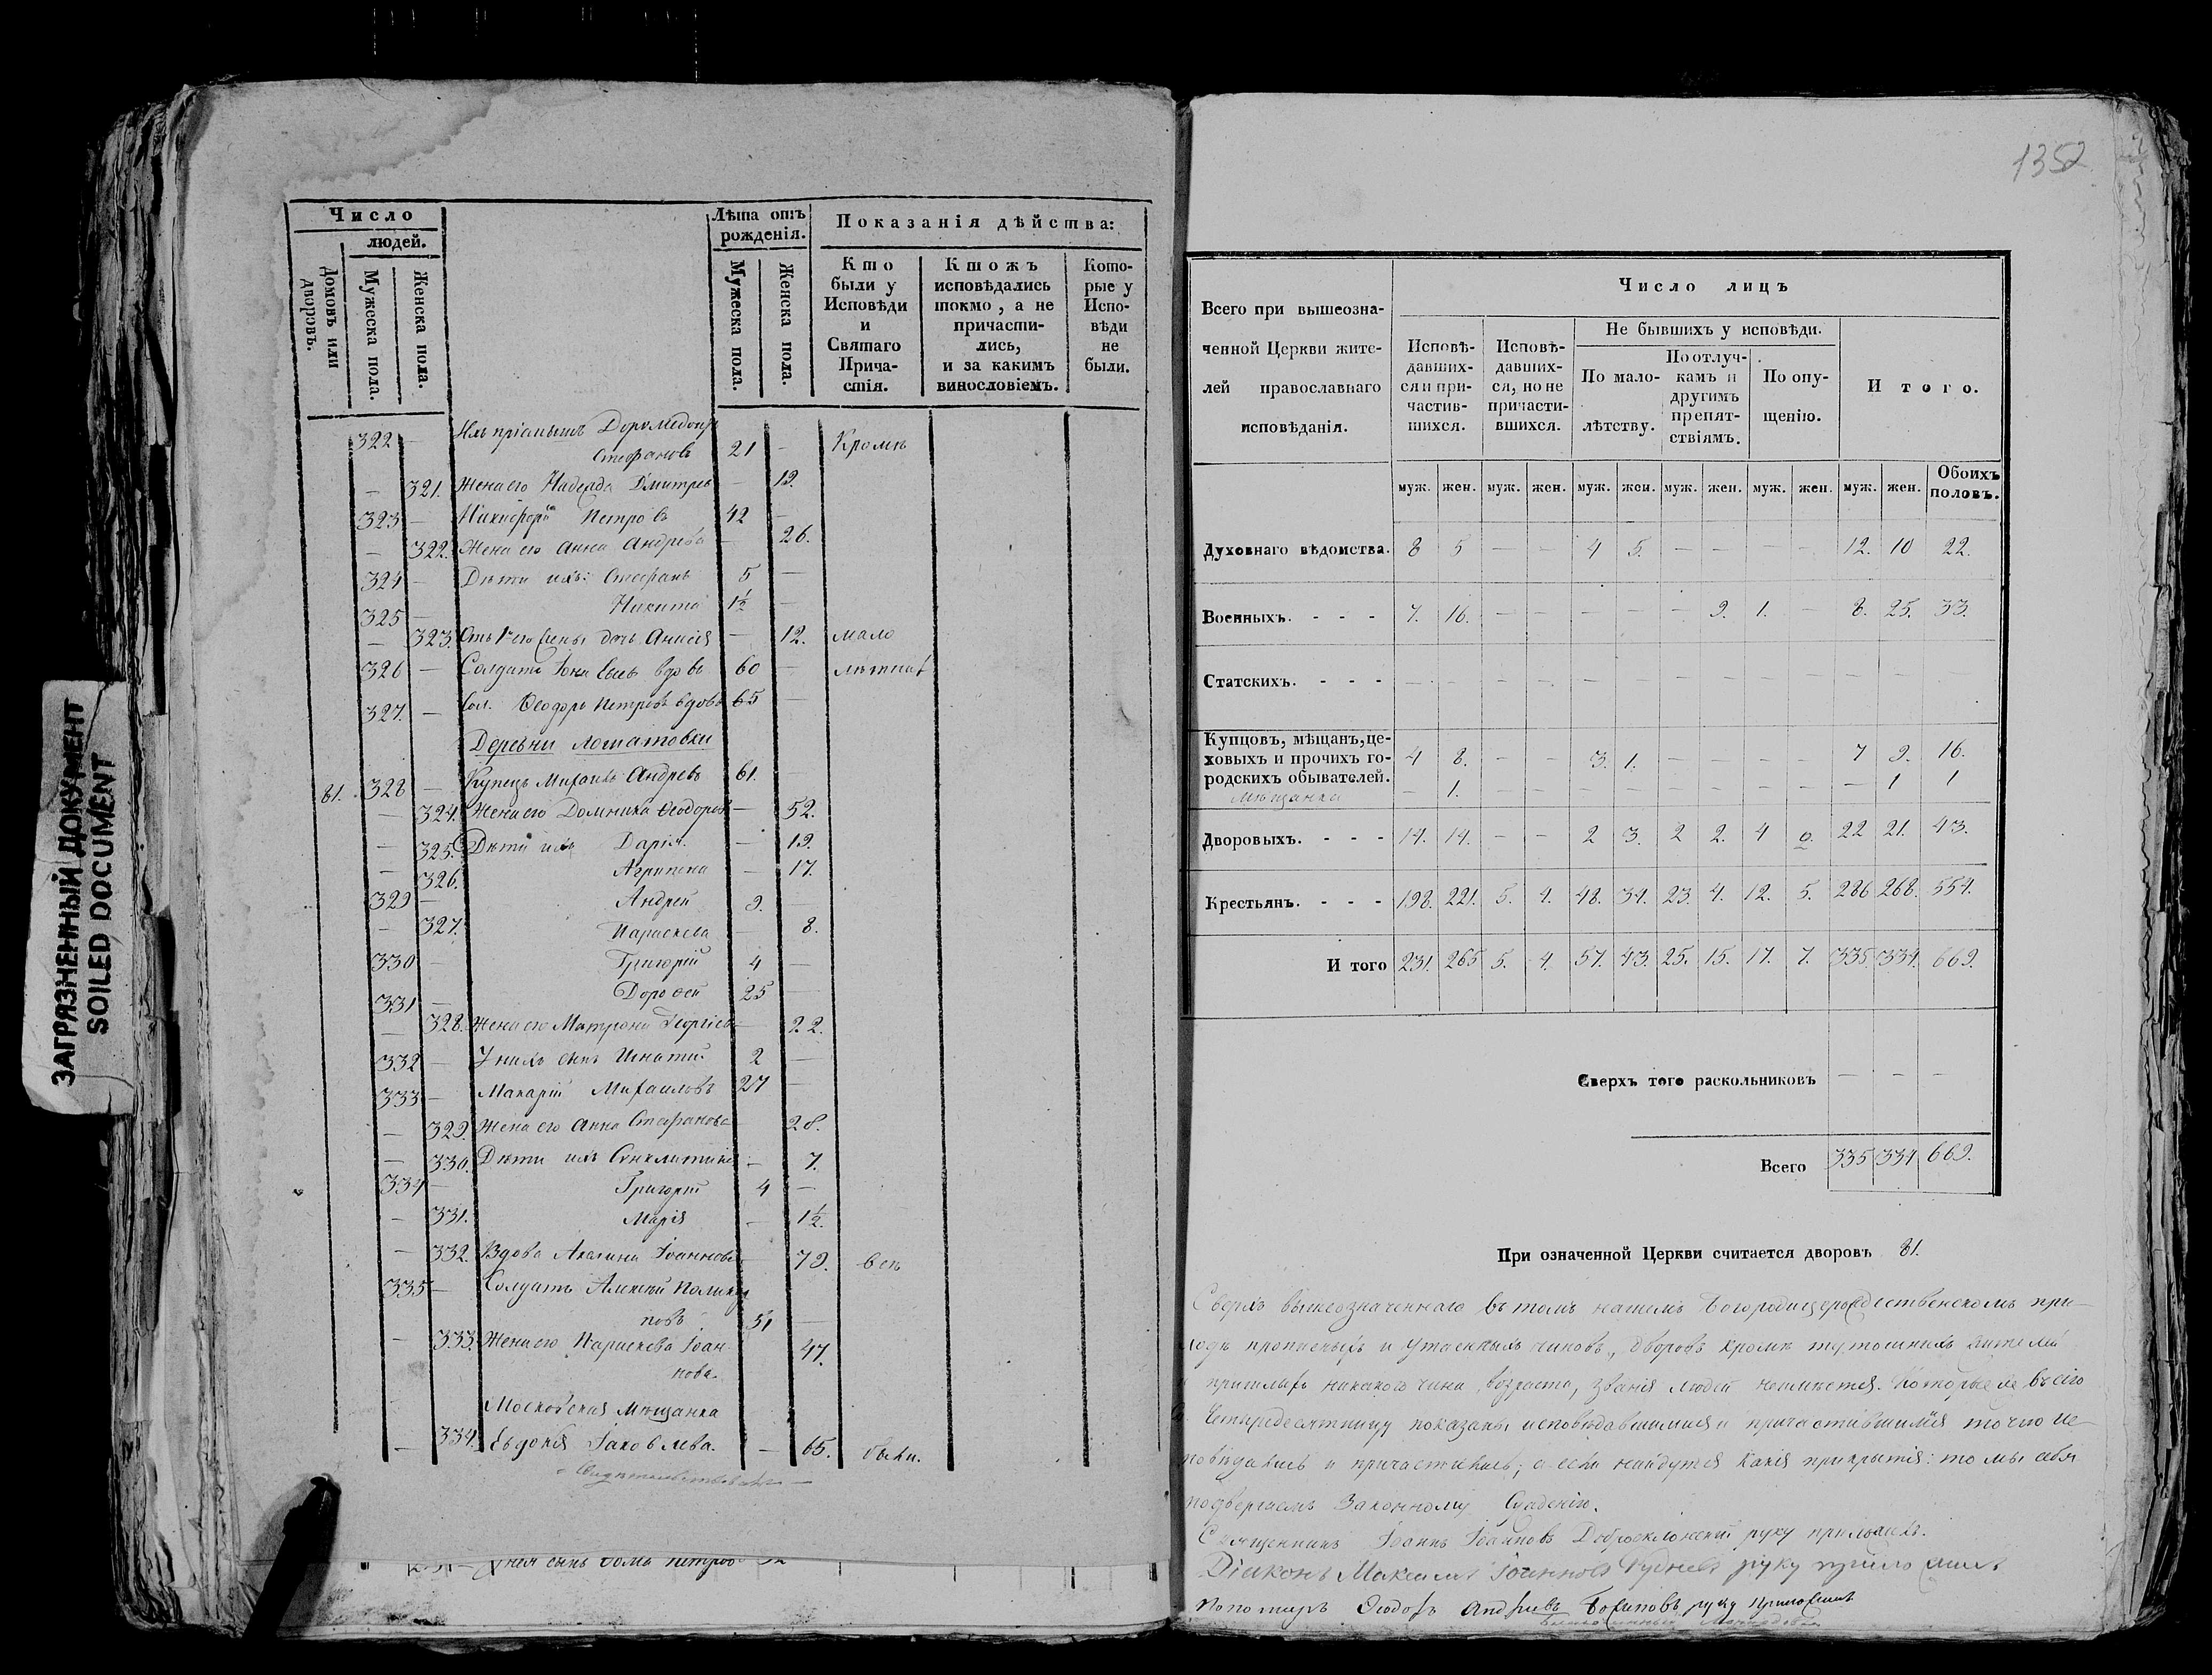 ЗАГРЯЗНЕННЫЙ ДОКУМЕНТ
SOILED DOCUMENT
Число
людей.
Домовъ или дворовъ.
Мужеска пола.
Женска пола.
Лѣта отъ рожденія.
Мужеска пола.
Женска пола.
Показанія дѣйства:
Кто были у Исповѣди и Святаго Причастія.
Ктожъ исповѣдались токмо, а не причастились, и за какимъ винословіемъ.
Которые у Исповѣди не были.
322 — Ихъ пріемышъ Доримедонтъ
Стефановъ 21 — Кромѣ
— 321. Жена его Надежда Дмитрев — 19.
323 — Никифоръ Петровъ 42 —
— 322. Жена его Анна Андреева — 26.
324 — Дѣти ихъ: Стефанъ 5 —
325 — Никита 1½ —
— 323. Отъ 1й его жены дочь Анисія — 12. мало
326 — Солдатъ вдовъ 60 — лѣтнихъ
327. — Сол. Ѳеодоръ Петровъ вдовъ 65 —
Деревни
81. 328 — Купецъ Михаилъ Андреевъ 61. —
— 324. Жена его Домника Ѳеодоров — 52.
— 325. Дѣти ихъ Дарія — 19.
— 326. Агрипена — 17.
329 — Андрей 9. —
— 327. Параскева — 8.
330 — Григорій 4 —
331 — Дороѳей 25 —
— 328. Жена его Матрона Георгіев — 22.
332 — У нихъ сынъ Игнатій 2 —
333 — Макарій Михаиловъ 27 —
— 329. Жена его Анна Стефанова 28.
— 330. Дѣти ихъ Синклитикія — 7.
334 — Григорій 4 —
— 331. Марія — 1½.
— 332. Вдова Акилина Іоаннова 79. всѣ
335 — Солдатъ Алексѣй Поликар
повъ 51 —
— 333. Жена его Параскева Іоан-
нова. 47.
Московская Мѣщанка
— 334. Евдокія Іаковлева. — 65. были.
1352
Всего при вышеозначенной Церкви жителей православнаго исповѣданія.
Число лицъ
Исповѣдавшихся и причастившихся.
Исповѣдавшихся, но не причастившихся.
Не бывшихъ у исповѣди.
По малолѣтству.
По отлучкамъ и другимъ препятствіямъ.
По опущенію.
Итого.
муж. жен. муж. жен. муж. жен. муж. жен. муж. жен. муж. жен. Обоихъ половъ.
Духовнаго вѣдомства. 8 5 — — 4 5. — — — — 12. 10 22.
Военныхъ. 7. 16. — — — — — 9. 1. — 8. 25. 33.
Статскихъ. — — — — — — — — — — — — —
Купцовъ, мѣщанъ, цеховыхъ и прочихъ городскихъ обывателей. 4 8. — — 3. 1. — — — — 7 9. 16.
Мѣщанка — 1. — — — — — — — — — 1 1
Дворовыхъ. 14. 14. — — 2 3. 2 2. 4 2. 22 21. 43.
Крестьянъ. 198. 221. 5. 4. 48. 34. 23. 4. 12. 5. 286 268. 554.
Итого 231. 265 5. 4. 57. 43. 25. 15. 17. 7. 335. 334. 669.
Сверхъ того раскольниковъ — — —
Всего 335 334 669.
При означенной Церкви считается дворовъ 81.
Сверхъ вышеозначеннаго въ томъ нашемъ Богородицерождественскомъ при-
ходѣ прописныхъ и утаенныхъ чиновъ, дворовъ кромѣ тутошнихъ жителей
пришлыхъ никакого чина, возраста, званія людей неимѣется. Которыеже въ сію
Четыредесятницу показаны исповѣдавшимися и причастившимися точно ис-
повѣдались и причастились; а если найдутся какія прикрытія: то мы себя
подвергаемъ Законному Сужденію.
Священникъ Іоаннъ Іоанновъ Доброклонскій руку приложилъ.
Діаконъ Максимъ Іоанновъ Рудневъ руку приложилъ
Пономарь Ѳеодоръ Андреевъ руку приложилъ